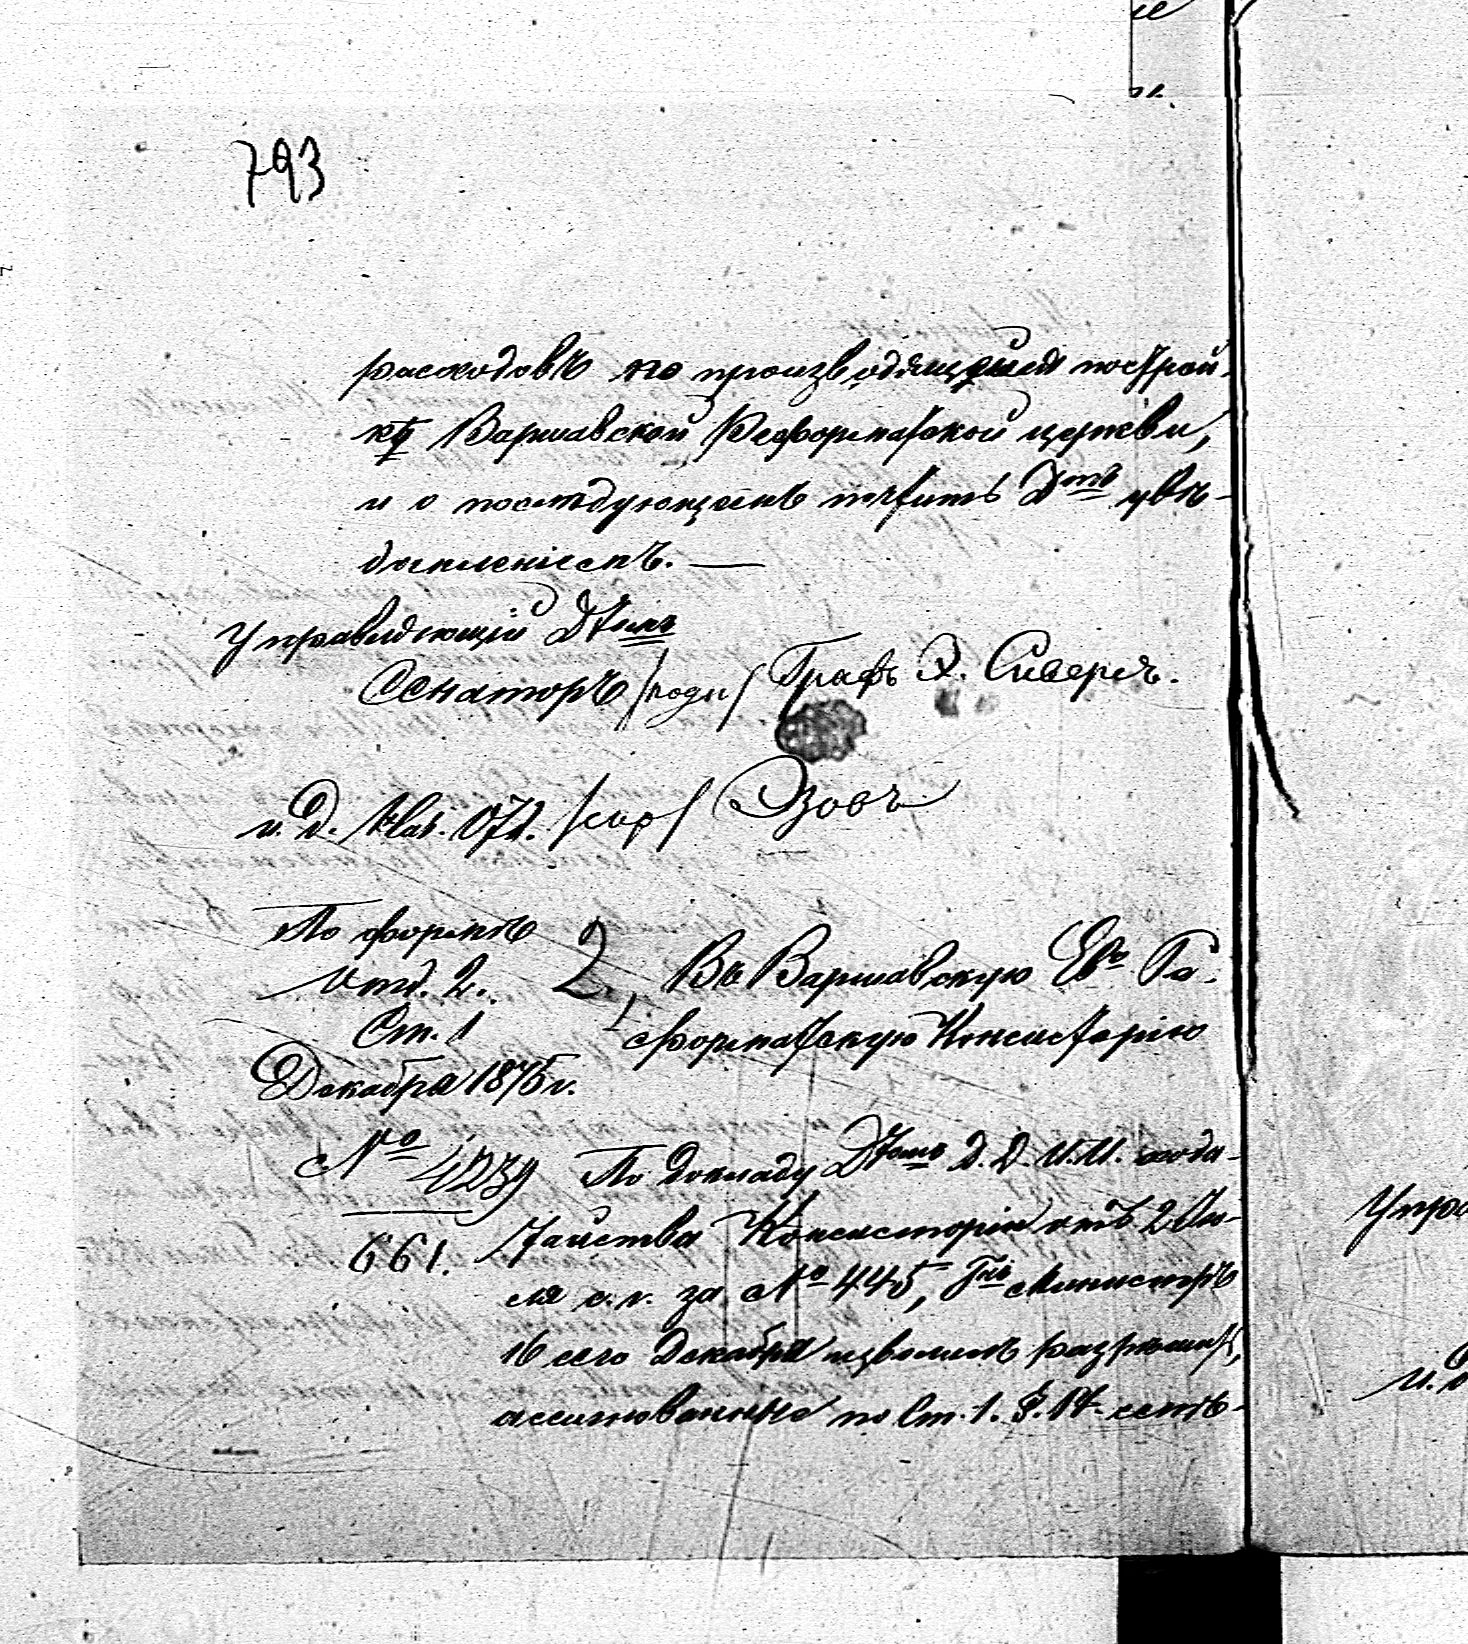 793
расходовъ по производящейся построй-
кѣ Варшавской Реформатской церкви,
и о послѣдующемъ почтить Д-тъ увѣ-
домленіемъ. —
Управляющій Д-томъ
Сенаторъ /подп/ Графъ Э. Сиверсъ.
и. д. Нач. Отд. /скр/ Эзовъ
По формѣ
Отд. 2.
Ст. 1
Декабря 1875 г.
№ 4239
661.
2, Въ Варшавскую Ев. Ре-
форматскую Консисторію
По докладу Д-томъ Д. Д. И. И. хода-
тайства Консисторіи отъ 2 Ію-
ля с. г. за № 445, Г-нъ Министръ
16 сего Декабря изволилъ разрѣшить,
ассигнованные по Ст. 1. §. 17. смѣты
Упра
И. д